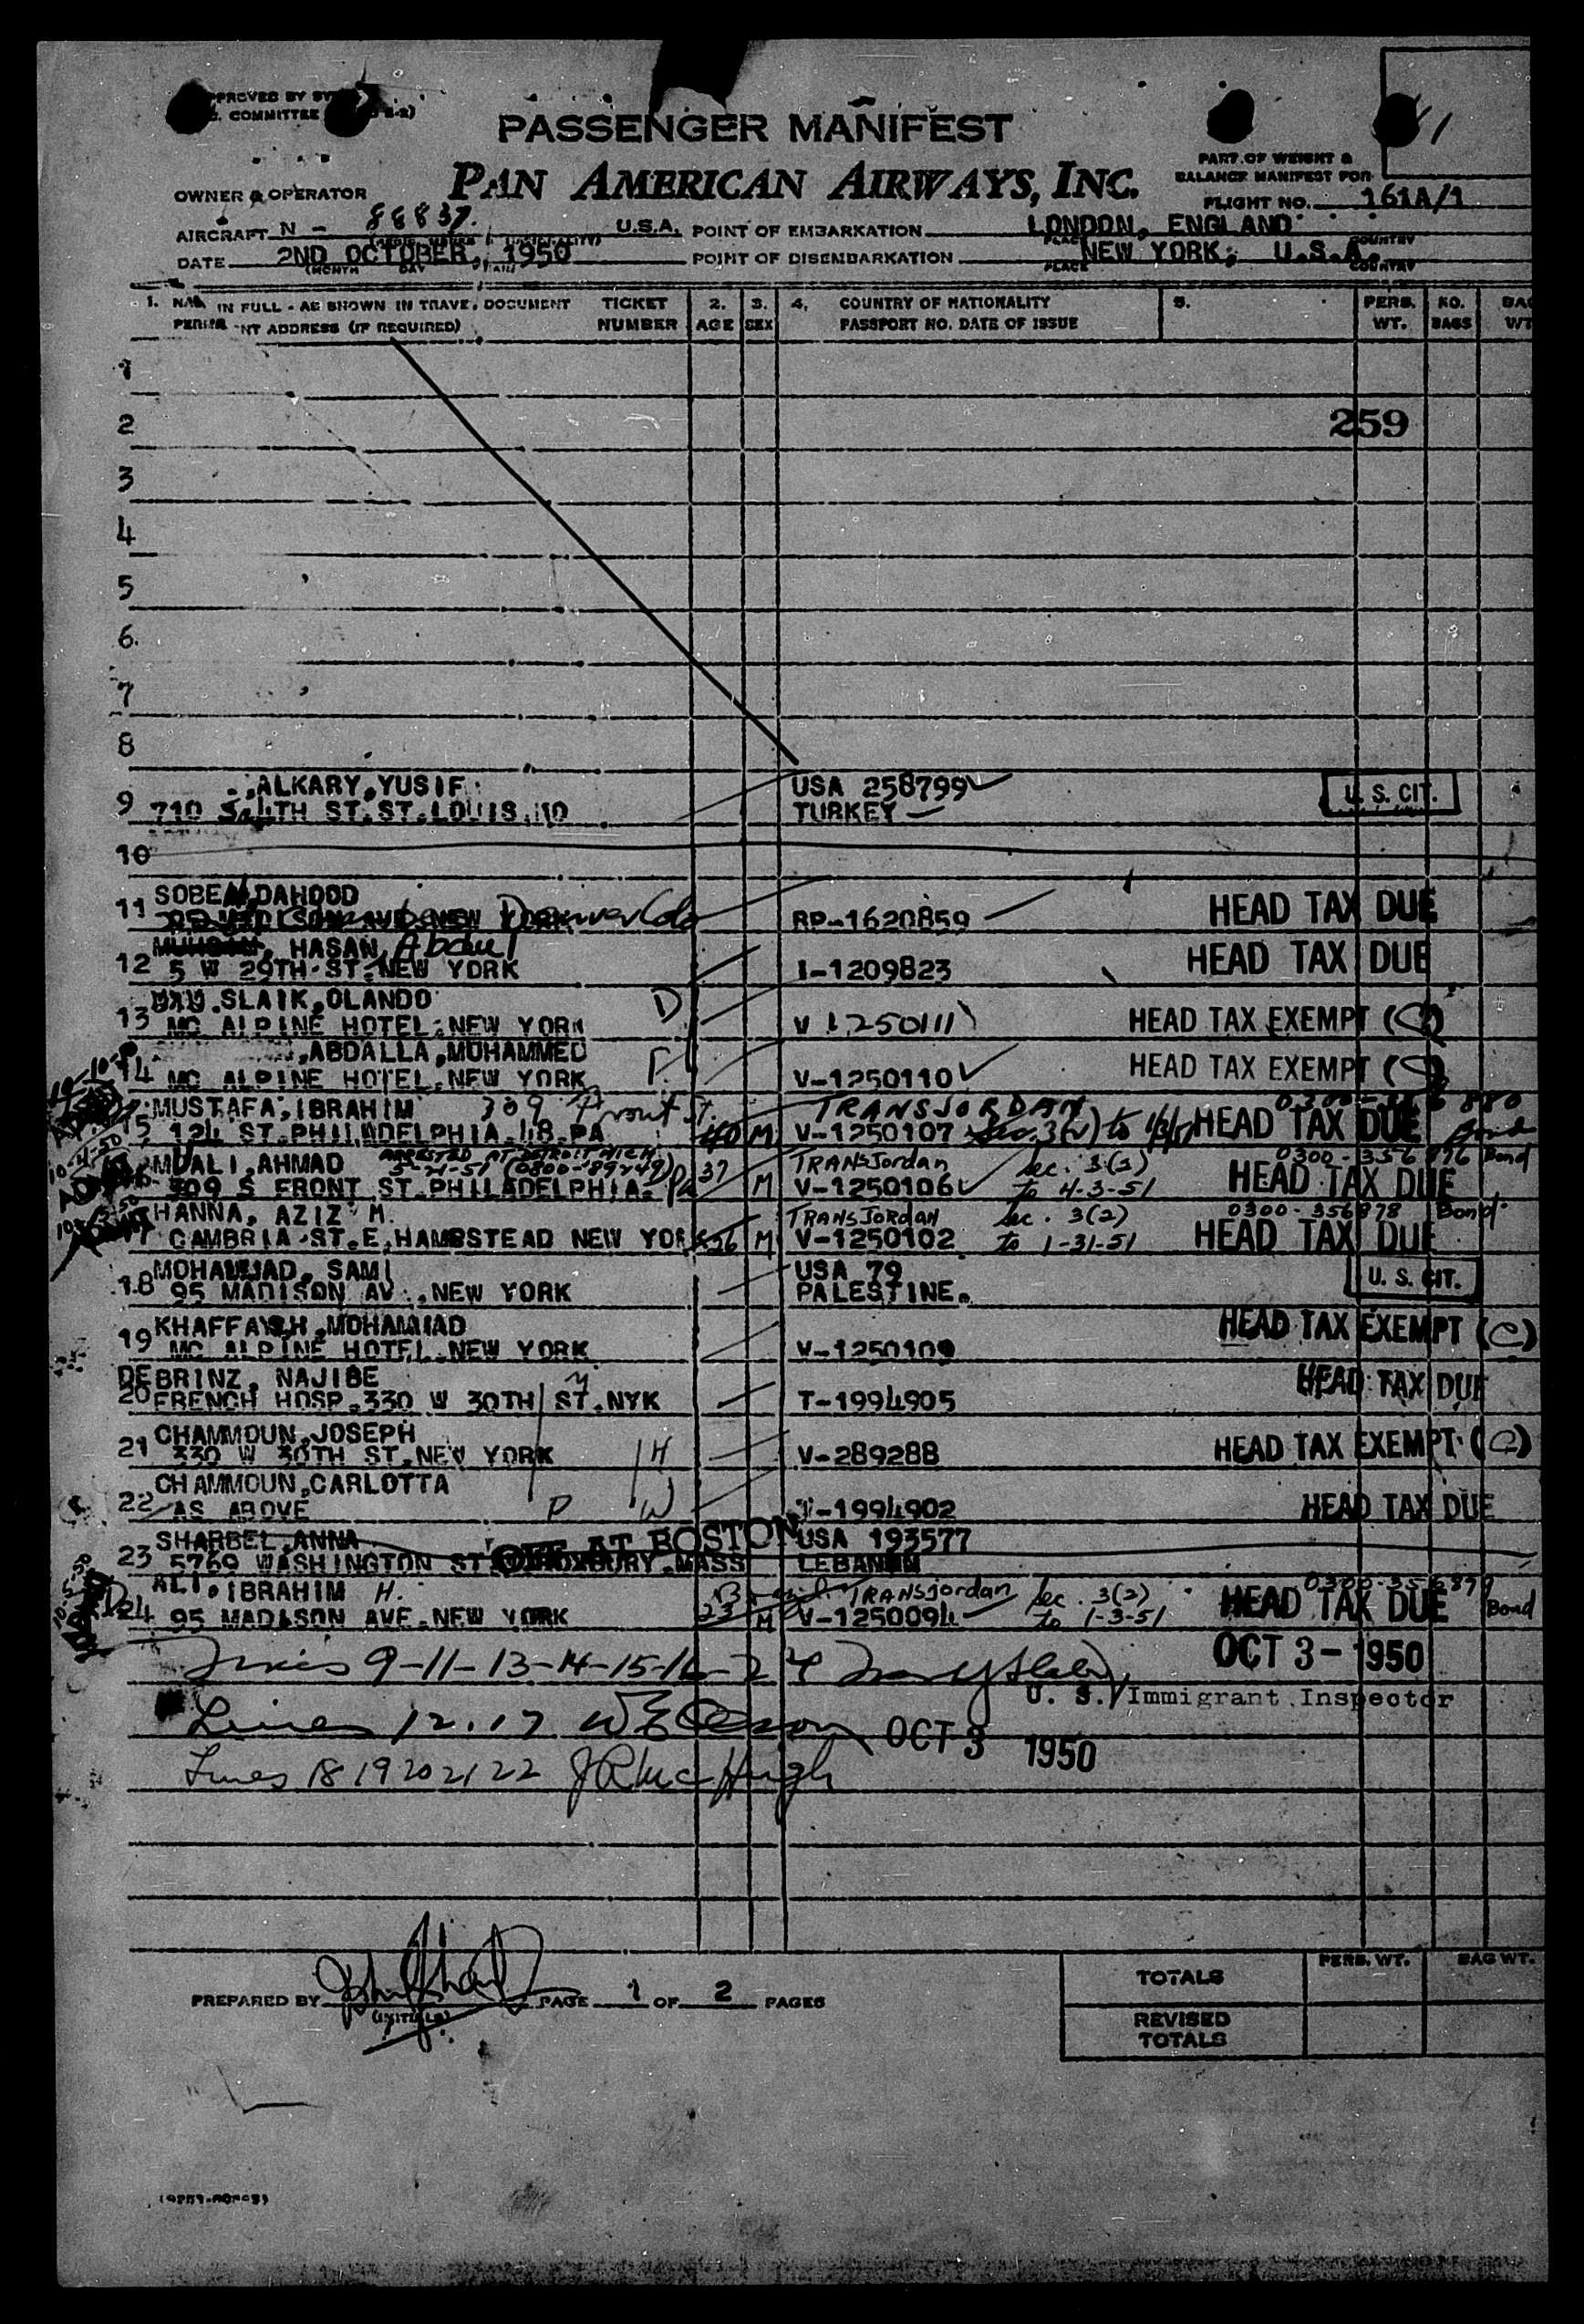 PASSENGER MANIFEST
PAN AMERICAN AIRWAYS, INC.
PART OF WEIGHT &
BALANCE MANIFEST FOR
OWNER & OPERATOR
FLIGHT NO. 161A/1
AIRCRAFT N - 88837. U.S.A. POINT OF EMBARKATION LONDON, ENGLAND
DATE 2ND OCTOBER, 1950 POINT OF DISEMBARKATION NEW YORK, U.S.A.
1. IN FULL - AS SHOWN IN DOCUMENT TICKET 2. 3. 4. COUNTRY OF NATIONALITY 5. PERS. NO.
ADDRESS (IF REQUIRED) NUMBER AGE SEX PASSPORT NO. DATE OF ISSUE WT. BAGS
1
2 259
3
4
5
6.
7
8
ALKARY, YUSIF USA 258799
9 710 S. 4TH ST. ST. LOUIS TURKEY U. S. CIT.
10
SOBEH, DAHOOD HEAD TAX DUE
11 95 MADISON AVE NEW YORK Denver Colo RP-1620859
HASAN, Abdul HEAD TAX DUE
12 5 W 29TH ST. NEW YORK I-1209823
SLAIK, OLANDO D
13 MC ALPINE HOTEL, NEW YORK V 1250111 HEAD TAX EXEMPT (C)
ABDALLA, MOHAMMED
14 MC ALPINE HOTEL, NEW YORK V-1250110 HEAD TAX EXEMPT (C)
MUSTAFA, IBRAHIM 309 Front St. TRANSJORDAN
15 124 ST. PHILADELPHIA. 48. PA 40 M V-1250107 HEAD TAX DUE Bond
MUALI, AHMAD ARRESTED AT DETROIT MICH 37 TRANSJordan Sec. 3(2) 0300-356876 Bond
5-21-51
309 S FRONT ST. PHILADELPHIA. Pa M V-1250106 to 4-3-51 HEAD TAX DUE
HANNA, AZIZ M. TRANSJORdan Sec. 3(2) 0300-356878 Bond
CAMBRIA ST. E. HAMPSTEAD NEW YOR 56 M V-1250102 to 1-31-51 HEAD TAX DUE
MOHAMMAD, SAMI USA 79
18 95 MADISON AV., NEW YORK PALESTINE. U. S. CIT.
KHAFFAYEH, MOHAMMAD HEAD TAX EXEMPT (C)
19 MC ALPINE HOTEL, NEW YORK V-1250109
DEBRINZ, NAJIBE HEAD TAX DUE
20 FRENCH HOSP. 330 W 30TH ST. NYK T-1994905
CHAMMOUN, JOSEPH
21 330 W 30TH ST. NEW YORK H V-289288 HEAD TAX EXEMPT (C)
CHAMMOUN, CARLOTTA
22 AS ABOVE P W T-1994902 HEAD TAX DUE
SHARBEL, ANNA OFF AT BOSTON USA 193577
23 5769 WASHINGTON ST ROXBURY. MASS LEBANON
ALI, IBRAHIM H. TRANSjordan Sec. 3(2)
24 95 MADISON AVE. NEW YORK 23 M V-1250094 to 1-3-51 HEAD TAX DUE Bond
Lines 9-11-13-14-15-16-24 OCT 3 - 1950
U. S. Immigrant Inspector
Lines 12.17 OCT 3 1950
Lines 18 19 20 21 22
PREPARED BY PAGE 1 OF 2 PAGES
(INITIALS)
TOTALS PERS. WT. BAG WT.
REVISED
TOTALS